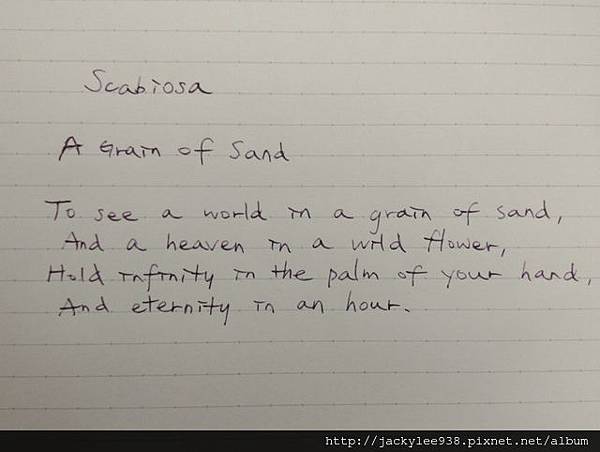 Scabiosa
A Grain of Sand
To see a world in a grain of sand,
And a heaven in a wild flower,
Hold infinity in the palm of your hand,
And eternity in an hour.
http://jackylee938.pixnet.net/album